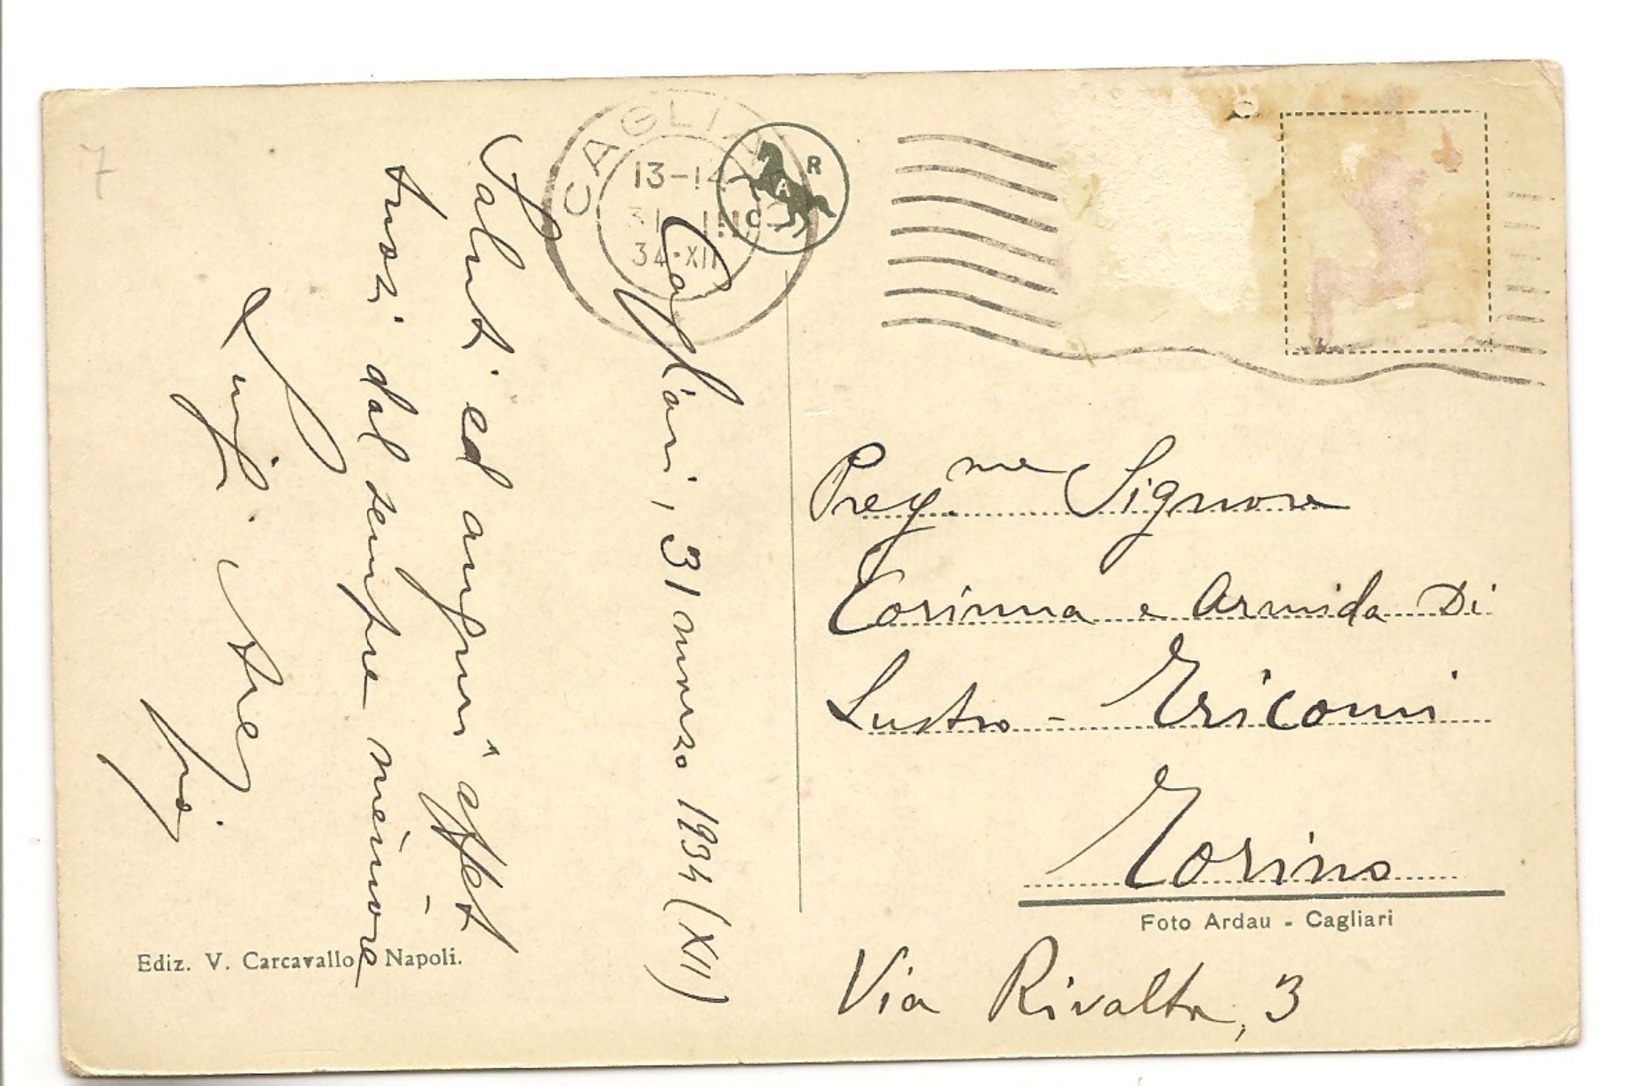 7
CAGLIARI
13-14
31 III
34·XII
R
A
C
Cagliari, 31 marzo 1934 (XII)
Saluti ed auguri affet
tuosi dal sempre memore
Luigi
Preg.me Signore
Corinna e Armida Di
Lustro - Ericomi
Torino
Foto Ardau - Cagliari
Via Rivalta, 3
Ediz. V. Carcavallo - Napoli.